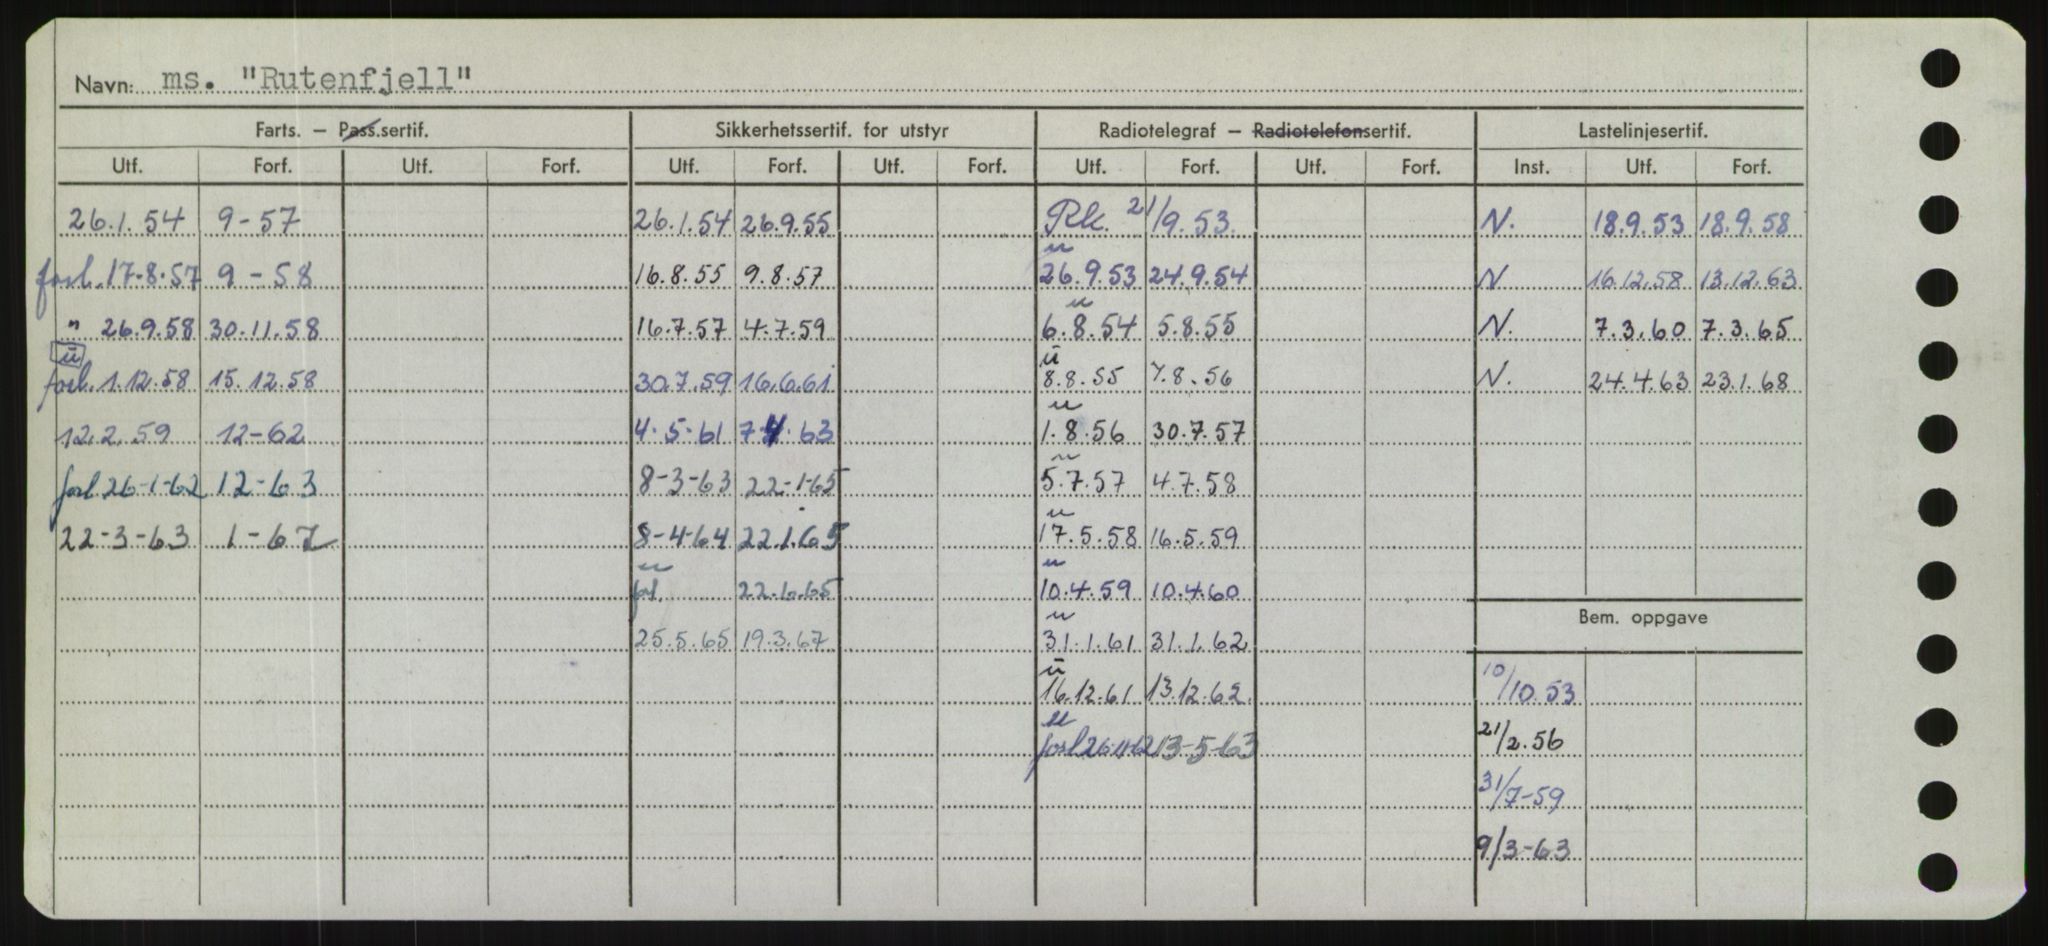 Navn: ms. "Rutenfjell"
Farts. – Pass.sertif. Sikkerhetssertif. for utstyr Radiotelegraf – Radiotelefonsertif. Lastelinjesertif.
Utf. Forf. Utf. Forf. Utf. Forf. Utf. Forf. Utf. Forf. Utf. Forf. Inst. Utf. Forf.
26.1.54 9-57 26.1.54 26.9.55 Rk. 21/9.53. N. 18.9.53 18.9.58
u
forl. 17-8-57 9-58 16.8.55 9.8.57 26.9.53 24.9.54 N 16.12.58 13.12.63
u
" 26.9.58 30.11.58 16.7.57 4.7.59 6.8.54 5.8.55 N. 7.3.60 7.3.65
u u
forl. 1.12.58 15.12.58 30.7.59 16.6.61 8.8.55 7.8.56 N. 24.4.63 23.1.68
u
12.2.59 12-62 4-5-61 7.4.63 1.8.56 30.7.57
u
forl 26-1-62 12-63 8-3-63 22-1-65 5.7.57 4.7.58
u
22-3-63 1-67 8-4-64 22.1.65 17.5.58 16.5.59
u u
fol. 22.6.65 10.4.59 10.4.60
Bem. oppgave
u
25.5.65 19.3.67 31.1.61 31.1.62
u
16.12.61 13.12.62. 10/10.53
u
forl 26-11-62 13-5-63 21/2.56
31/7-59
9/3-63